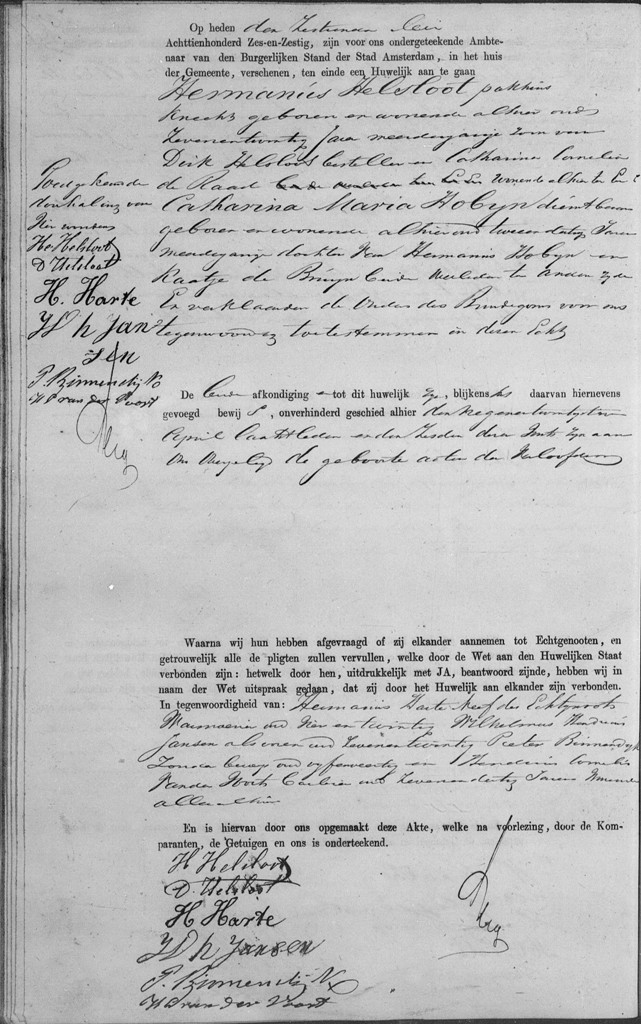 Op heden den Zestienden Mei
Achttienhonderd Zes-en-Zestig, zijn voor ons ondergeteekende Ambte-
naar van den Burgerlijken Stand der Stad Amsterdam, in het huis
der Gemeente, verschenen, ten einde een Huwelijk aan te gaan
Hermanus Helsloot, pakhuis
knecht geboren en wonende alhier oud
Zevenentwintig Jaar meerderjarige zoon van
Dirk Helsloot besteller en Catharina Cornelia
de Raad wonende alhier ten Eene
Catharina Maria Hobyn dienstbaar
geboren en wonende alhier oud tweeendertig Jaren
meerderjarige dochter van Hermanus Hobyn en
Kaatje de Bruyn beide overleden ter andere zyde
En verklaarden de Vader des Bruidegoms voor ons
tegenwoordig toetestemmen in dezen Echt
Goedgekeurd de
doorhaling van
Vier woorden
H. Helsloot
D. Helsloot
H. Harte
W h Jan
sen
P. Binnendijk
H C van der Voort
De beide afkondiging en tot dit huwelijk zyn, blijkens het daarvan hiernevens
gevoegd bewijs, onverhinderd geschied alhier den Negenentwintigsten
April laatstleden en den Zesden dezer Zyn aan
Ons Overgelegd de geboorte acten der Verloofden
Waarna wij hun hebben afgevraagd of zij elkander aannemen tot Echtgenooten, en
getrouwelijk alle de pligten zullen vervullen, welke door de Wet aan den Huwelijken Staat
verbonden zijn: hetwelk door hen, uitdrukkelijk met JA, beantwoord zijnde, hebben wij in
naam der Wet uitspraak gedaan, dat zij door het Huwelijk aan elkander zijn verbonden.
In tegenwoordigheid van: Hermanus Harte Neef des Echtgenoots
oud Vier en twintig Wilhelmus Hendricus
Jansen oud Zevenentwintig Pieter Binnendijk
Zonder beroep oud vyfenveertig en Hendricus Cornelis
van der Voort oud Zevenendertig Jaren Wonende
allen alhier
En is hiervan door ons opgemaakt deze Akte, welke na voorlezing, door de Kom-
paranten, de Getuigen en ons is onderteekend.
H Helsloot
D. Helsloot
H Harte
W h Jansen
P. Binnendijk
H C van der Voort